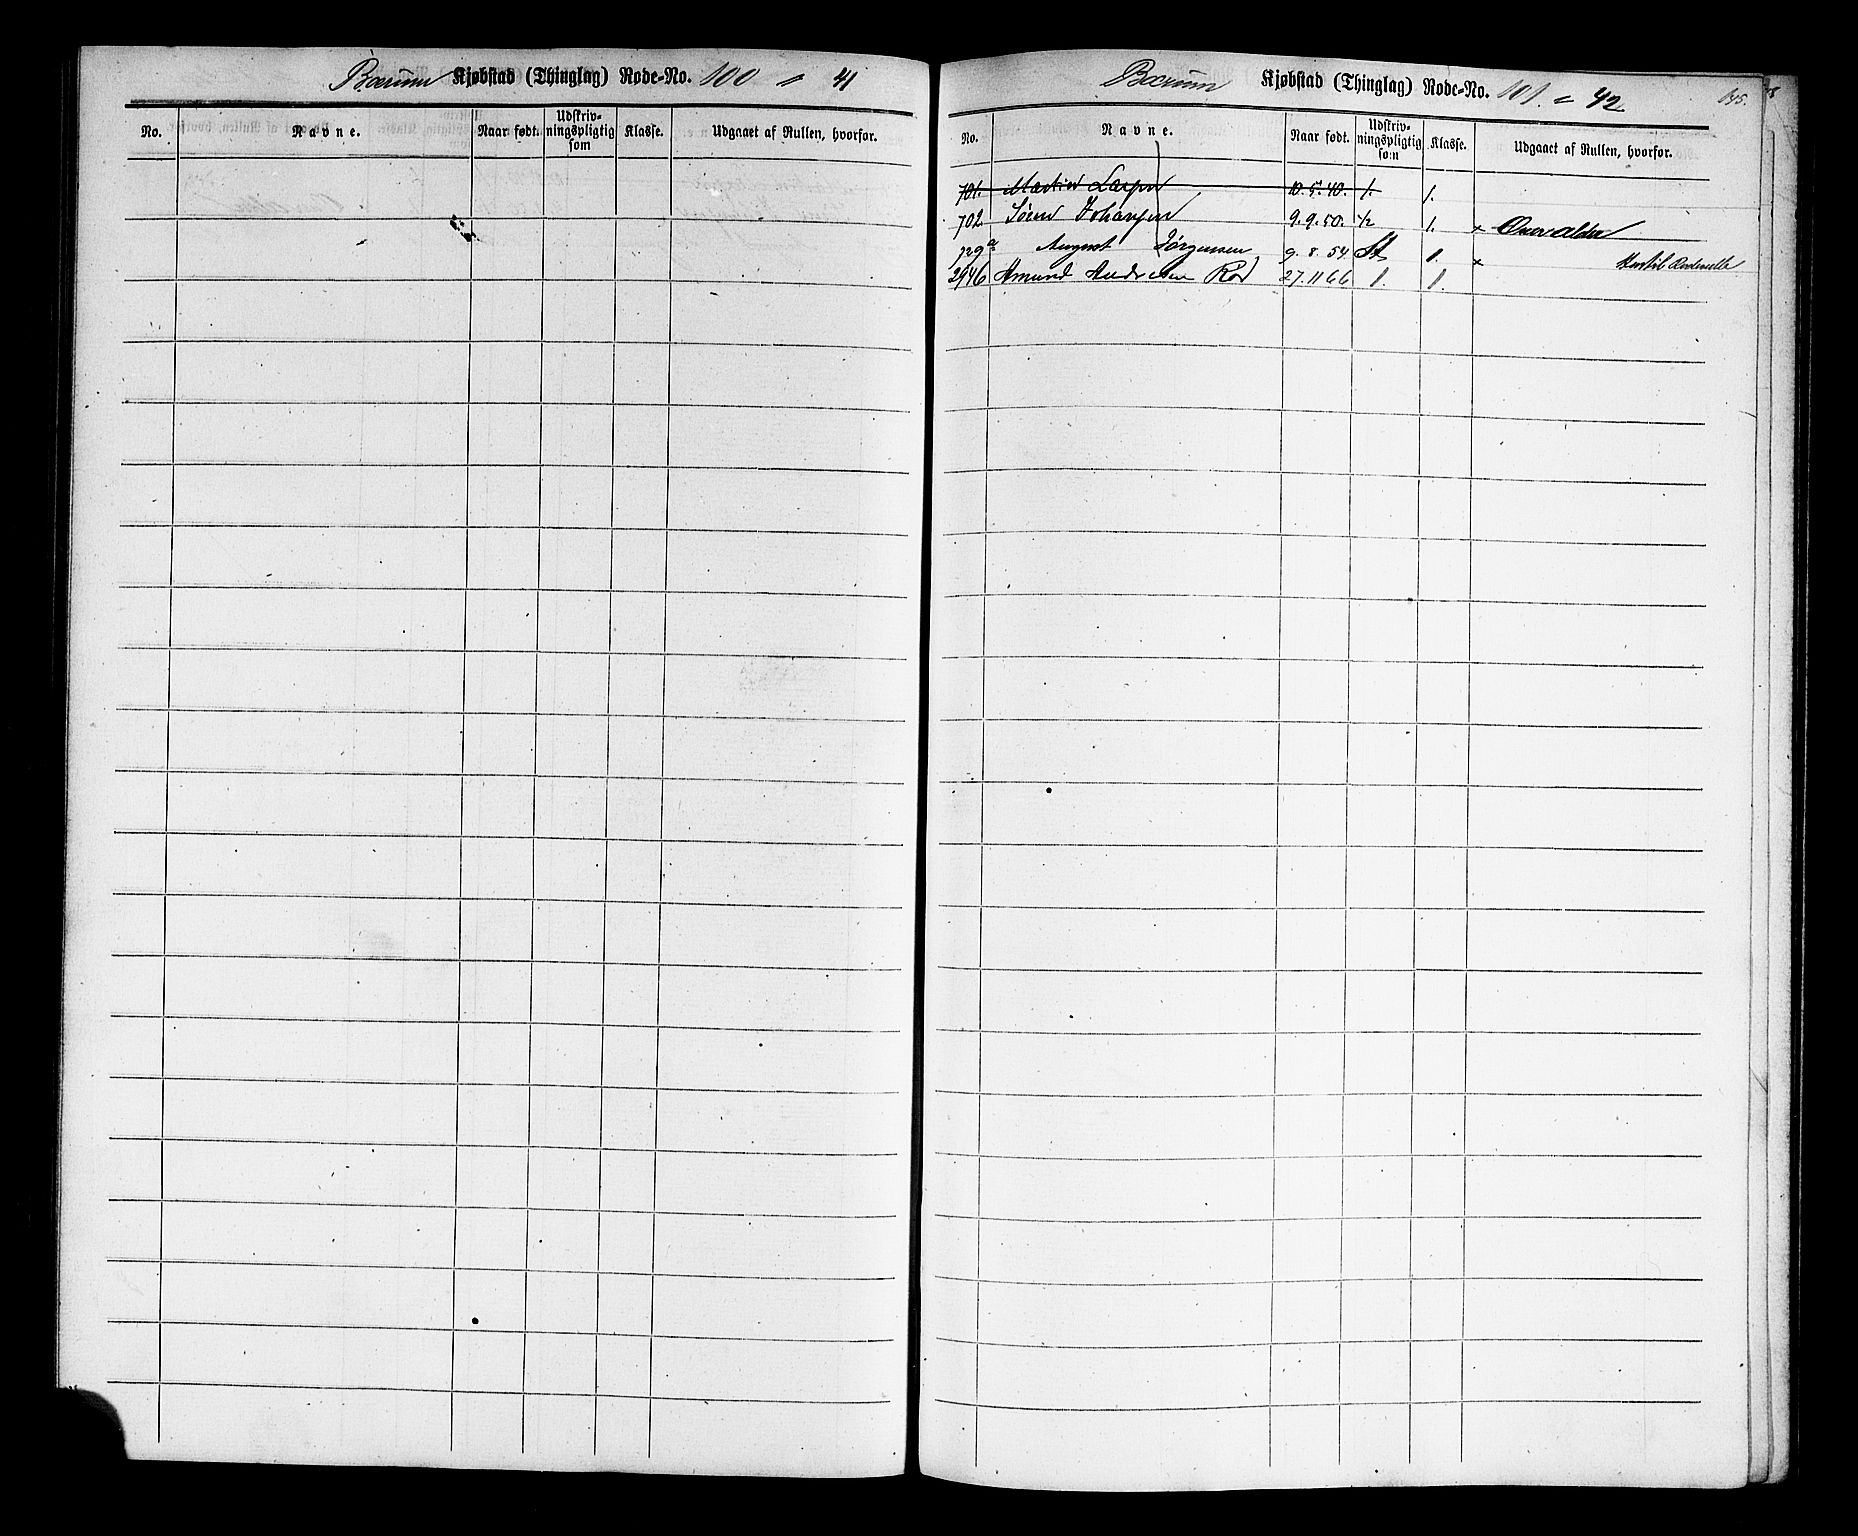 Bærum Kjøbstad (Thinglag) Rode-No. 100 = 41
No. Navne. Naar født. Udskriv-ningspligtig som Klasse. Udgaaet af Rullen, hvorfor.
Bærum Kjøbstad (Thinglag) Rode-No. 101. = 42
No. Navne. Naar født. Udskriv-ningspligtig som Klasse. Udgaaet af Rullen, hvorfor.
701. Martin Larsen 10.5.40. 1. 1.
702 Søren Johansen 9.9.50. 1/2 1. × Overalder
729 a August Jørgensen 9.8.54 St 1. ×
2446 Amund Andersen 27.11 66 1. 1.